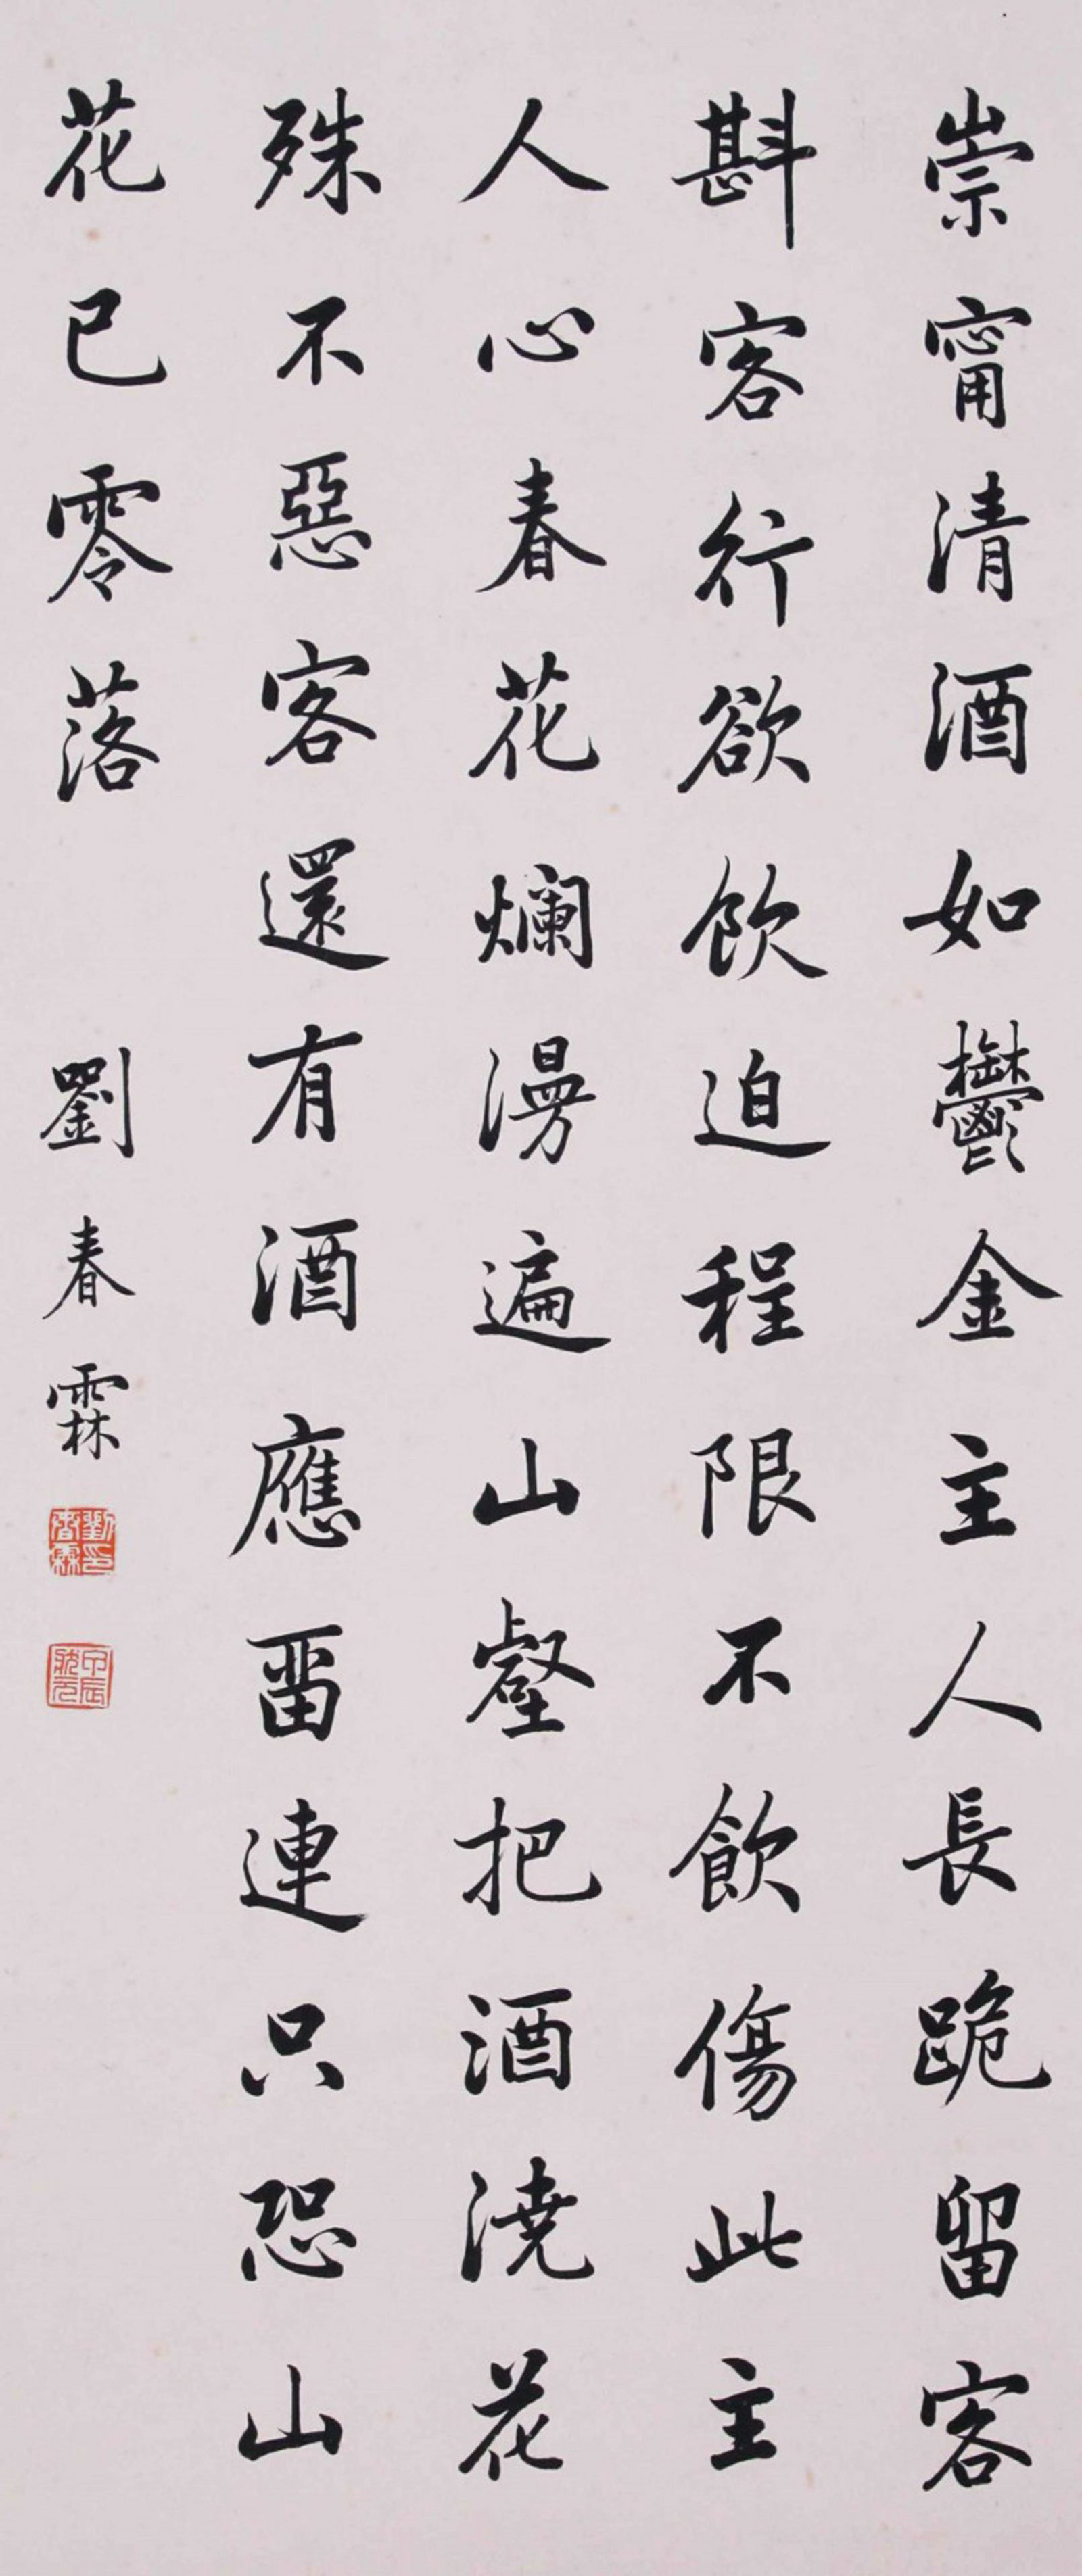 崇甯清酒如鬱金主人長跪留客
斟客行欲飲迫程限不飲傷此主
人心春花爛漫遍山壑把酒澆花
殊不惡客還有酒應畱連只恐山
花已零落
劉春霖
劉春霖印
甲辰狀元